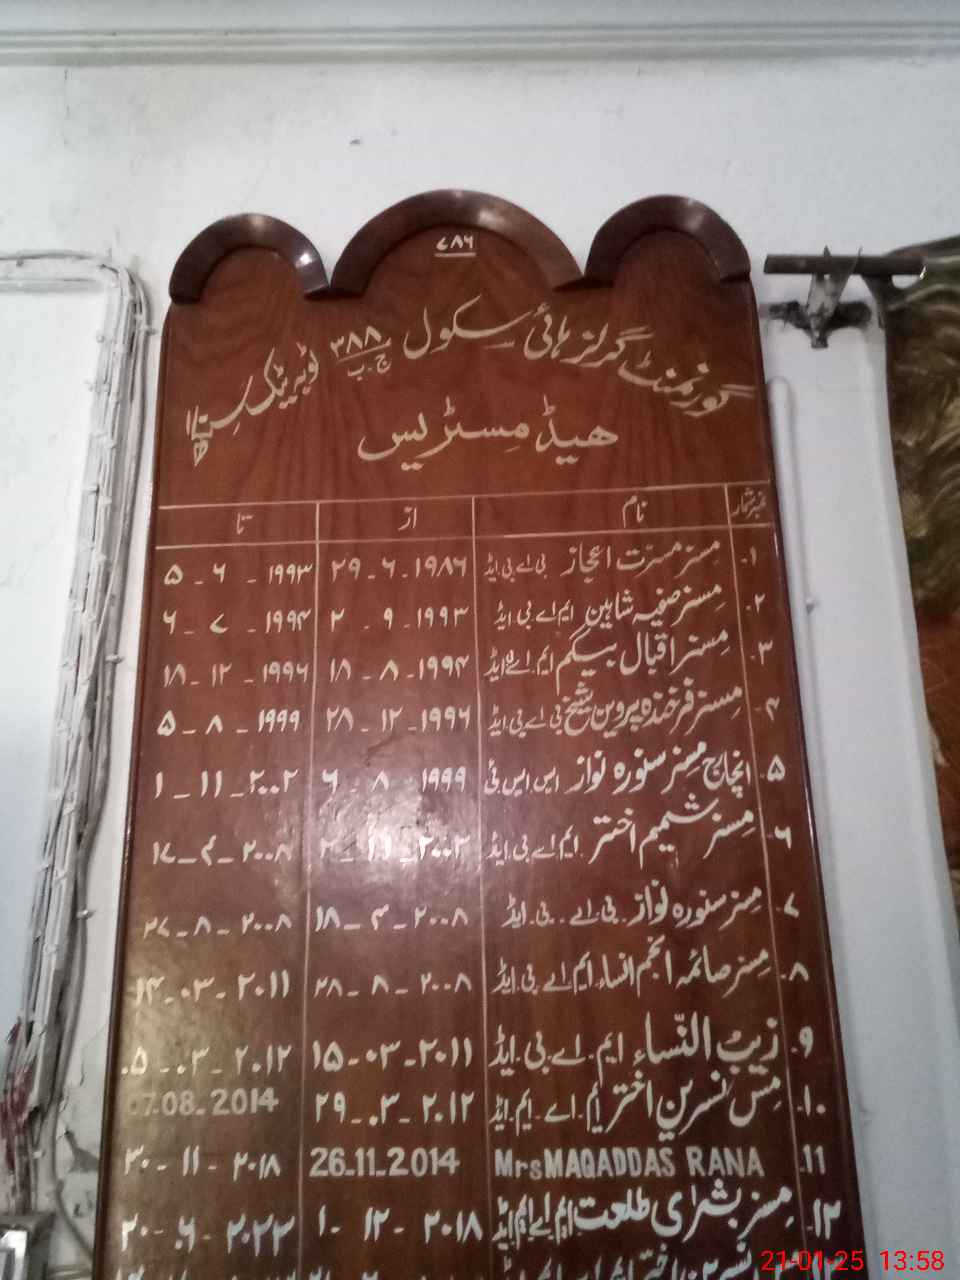 ۷۸۶
گورنمنٹ گرلز ہائی سکول ۳۸۸ ج۔ب
ھیڈ مسٹریس
نمبر شمار نام از تا
۱۔ مسز مسرت اعجاز بی اے بی ایڈ ۲۹-۶-۱۹۸۶ ۵-۶-۱۹۹۳
۲۔ مسز صفیہ شاہین ایم اے بی ایڈ ۲-۹-۱۹۹۳ ۶-۷-۱۹۹۴
۳۔ مسز اقبال بیگم ایم اے ایڈ ۱۸-۸-۱۹۹۴ ۱۸-۱۲-۱۹۹۶
۴۔ مسز فرخندہ پروین شیخ بی اے بی ایڈ ۲۸-۱۲-۱۹۹۶ ۵-۸-۱۹۹۹
۵۔ انچارج مسز سنورہ نواز ایس ایس ٹی ۶-۸-۱۹۹۹ ۱-۱۱-۲۰۰۲
۶۔ مسز شمیم اختر ایم اے بی ایڈ ۲-۱۱-۲۰۰۲ ۱۷-۴-۲۰۰۸
۷۔ مسز سنورہ نواز بی اے۔ بی۔ ایڈ ۱۸-۴-۲۰۰۸ ۲۷-۸-۲۰۰۸
۸۔ مسز صائمہ انجم انساء ایم اے بی ایڈ ۲۸-۸-۲۰۰۸ ۱۴-۰۳-۲۰۱۱
۹۔ زیب النّساء ایم۔اے۔بی۔ایڈ ۱۵-۰۳-۲۰۱۱ ۰۵-۰۳-۲۰۱۲
۱۰۔ مس نسرین اختر ایم۔اے۔ایم۔ایڈ ۲۹-۰۳-۲۰۱۲ 07.08-2014
۱۱۔ Mrs MAQADDAS RANA 26-11-2014 ۳۰-۱۱-۲۰۱۸
۱۲۔ مسز بشرٰی طلعت ایم اے ایم ایڈ ۱-۱۲-۲۰۱۸ ۲۰-۰۶-۲۰۲۳
21-01-25 13:58